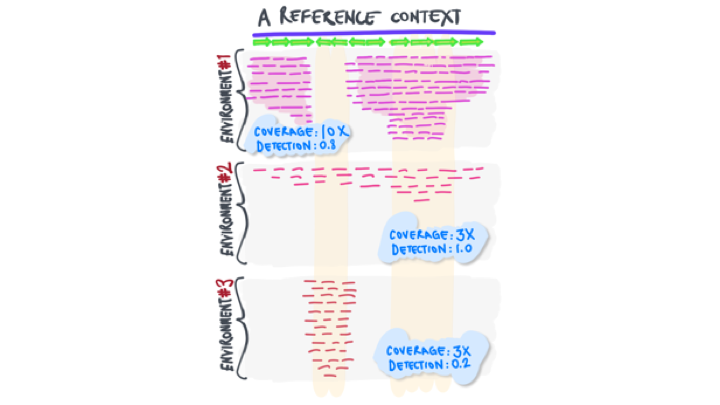 A REFERENCE CONTEXT
ENVIRONMENT#1
COVERAGE: 10X
DETECTION: 0.8
ENVIRONMENT#2
COVERAGE: 3X
DETECTION: 1.0
ENVIRONMENT#3
COVERAGE: 3X
DETECTION: 0.2